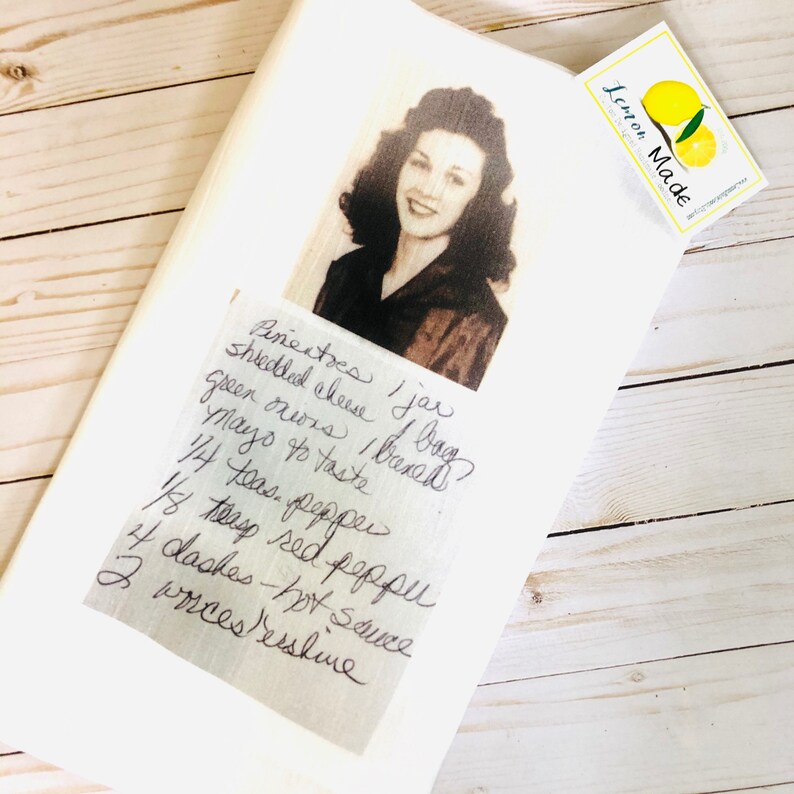 Lemon
Made
Pimentoes 1 jar
shredded cheese 1 bag
green onions 1 bunch
Mayo to taste
1/4 teas. pepper
1/8 teasp red pepper
4 dashes - hot sauce
2 worcestershire